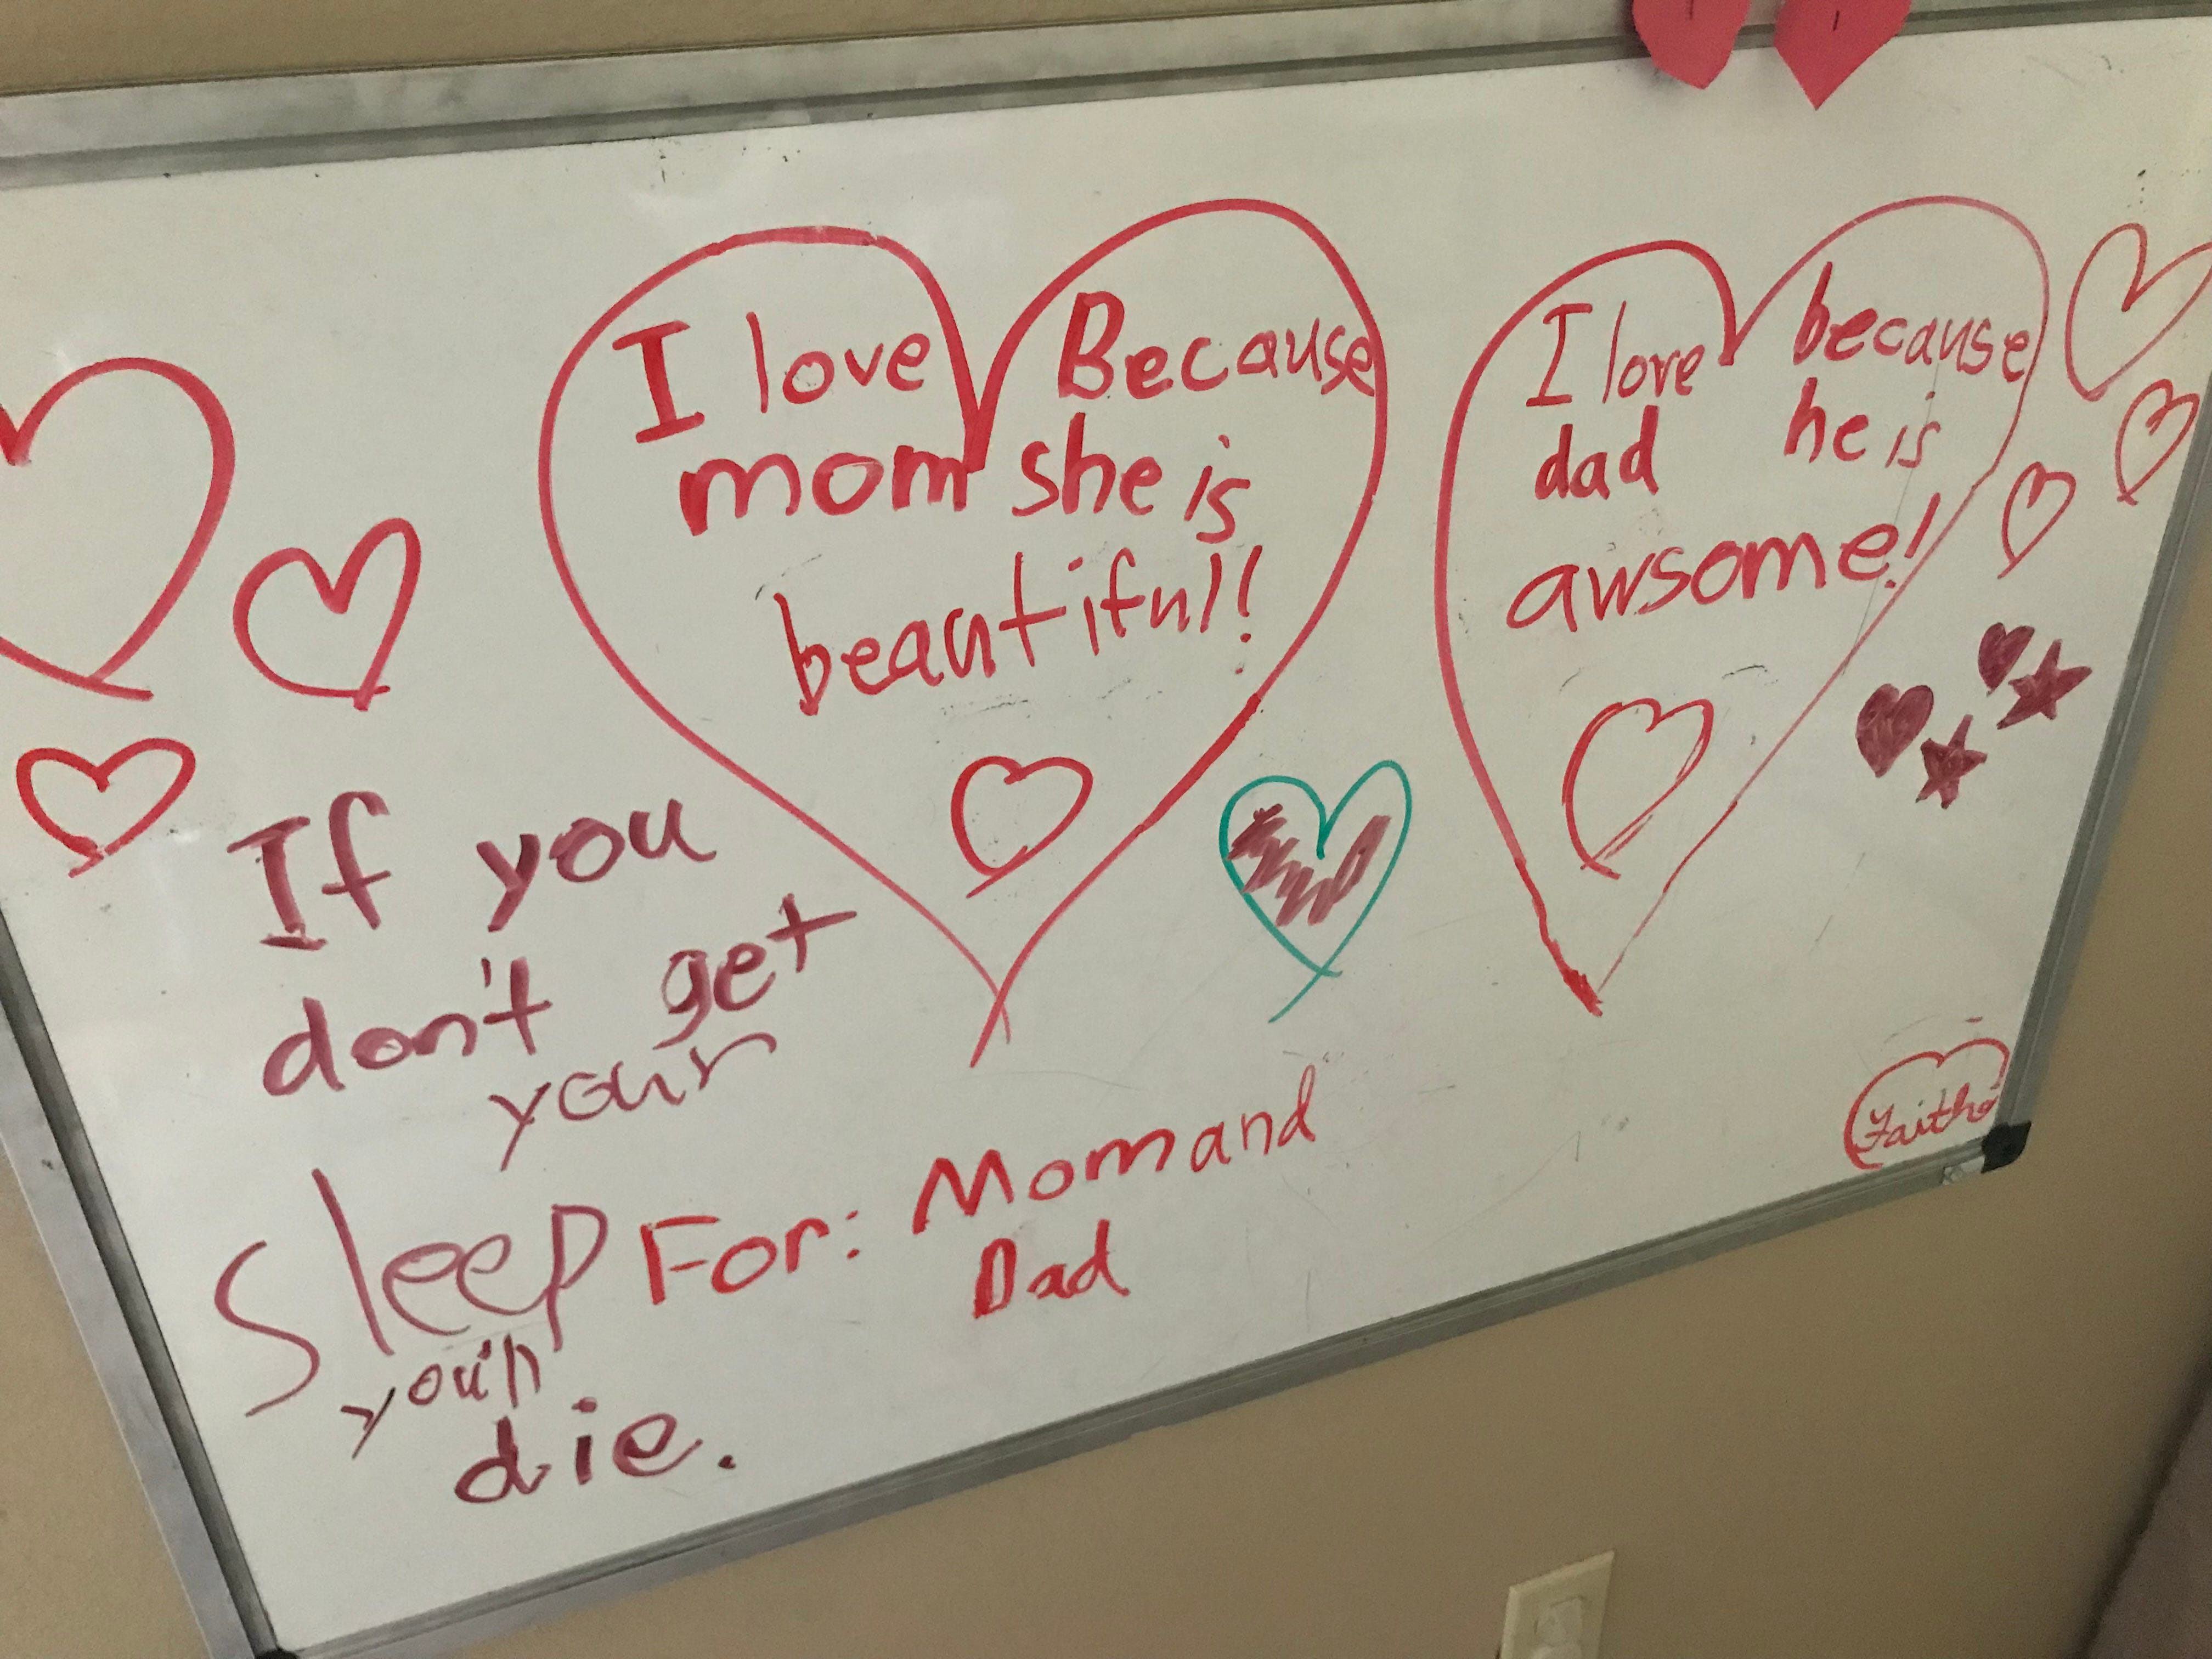 I love
mom
Because
she is
beautiful!
I love
dad
because
he is
awsome!
If you
don't get
your
Sleep
you'll
die.
For: Mom and
Dad
Faith